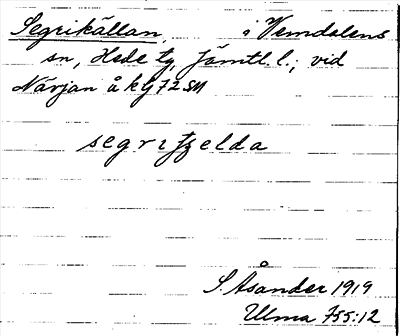 Segrikällan, i Vemdalens
sn, Hede tg, Jämtl. l.; vid
Närjan å
segri elda
S. Åsander 1919
Ulma 755:12